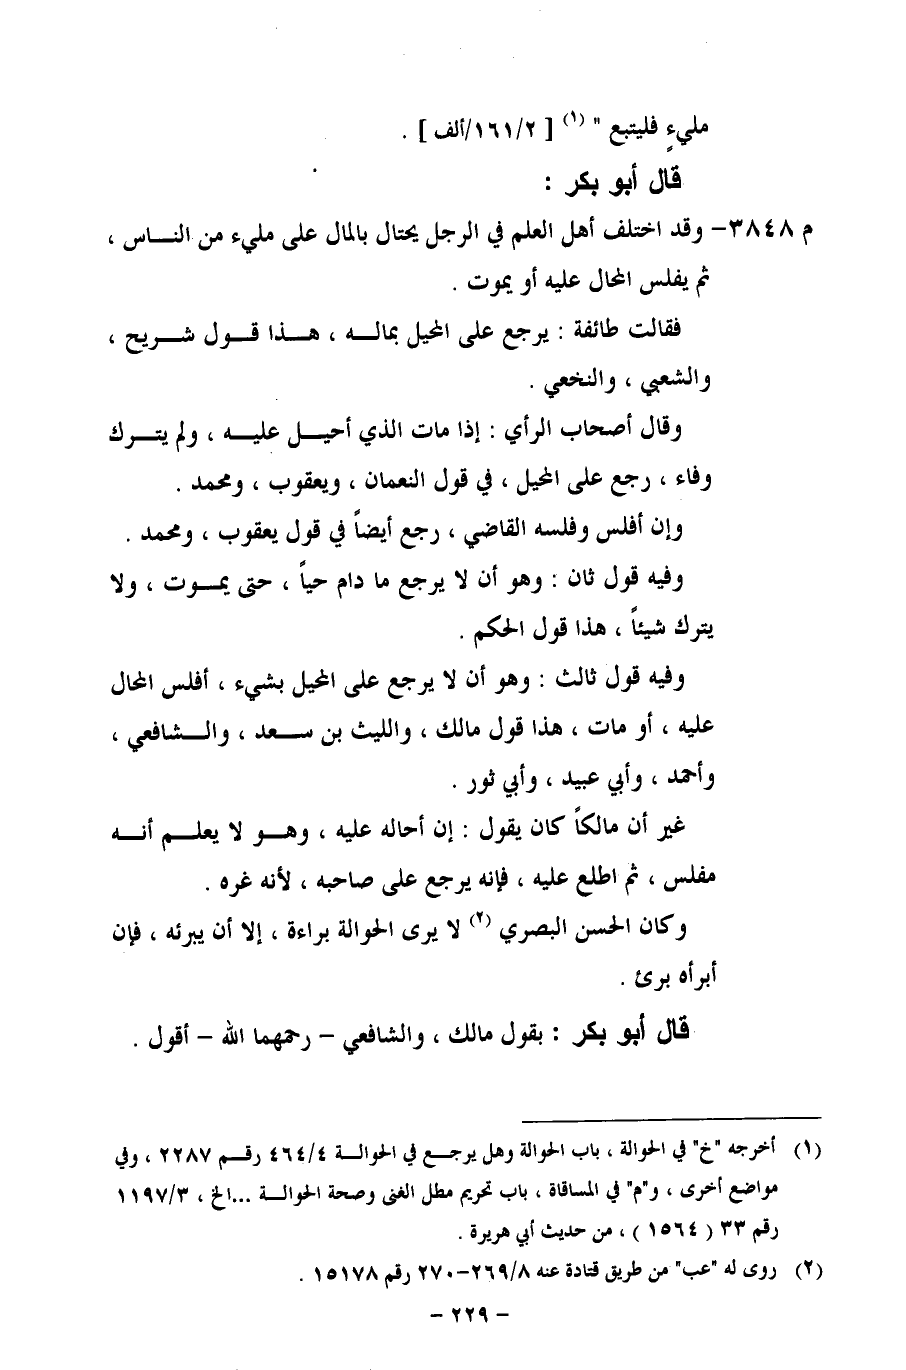 مليءٍ فليتبع " (١) [ ١٦١/٢/ألف ] .
قال أبو بكر :
م ٣٨٤٨– وقد اختلف أهل العلم في الرجل يحتال بالمال على مليء من الناس ،
ثم يفلس المحال عليه أو يموت .
فقالت طائفة : يرجع على المحيل بماله ، هذا قول شريح ،
والشعبي ، والنخعي .
وقال أصحاب الرأي : إذا مات الذي أحيل عليه ، ولم يترك
وفاء ، رجع على المحيل ، في قول النعمان ، ويعقوب ، ومحمد .
وإن أفلس وفلسه القاضي ، رجع أيضاً في قول يعقوب ، ومحمد .
وفيه قول ثان : وهو أن لا يرجع ما دام حياً ، حتى يموت ، ولا
يترك شيئاً ، هذا قول الحكم .
وفيه قول ثالث : وهو أن لا يرجع على المحيل بشيء ، أفلس المحال
عليه ، أو مات ، هذا قول مالك ، والليث بن سعد ، والشافعي ،
وأحمد ، وأبي عبيد ، وأبي ثور .
غير أن مالكاً كان يقول : إن أحاله عليه ، وهو لا يعلم أنه
مفلس ، ثم اطلع عليه ، فإنه يرجع على صاحبه ، لأنه غره .
وكان الحسن البصري (٢) لا يرى الحوالة براءة ، إلا أن يبرئه ، فإن
أبرأه برئ .
قال أبو بكر : بقول مالك ، والشافعي – رحمهما الله – أقول .
(١) أخرجه "خ" في الحوالة ، باب الحوالة وهل يرجع في الحوالة ٤٦٤/٤ رقم ٢٢٨٧ ، وفي
مواضع أخرى ، و"م" في المساقاة ، باب تحريم مطل الغنى وصحة الحوالة ...الخ ، ١١٩٧/٣
رقم ٣٣ ( ١٥٦٤ ) ، من حديث أبي هريرة .
(٢) روى له "عب" من طريق قتادة عنه ٢٦٩/٨–٢٧٠ رقم ١٥١٧٨ .
– ٢٢٩ –